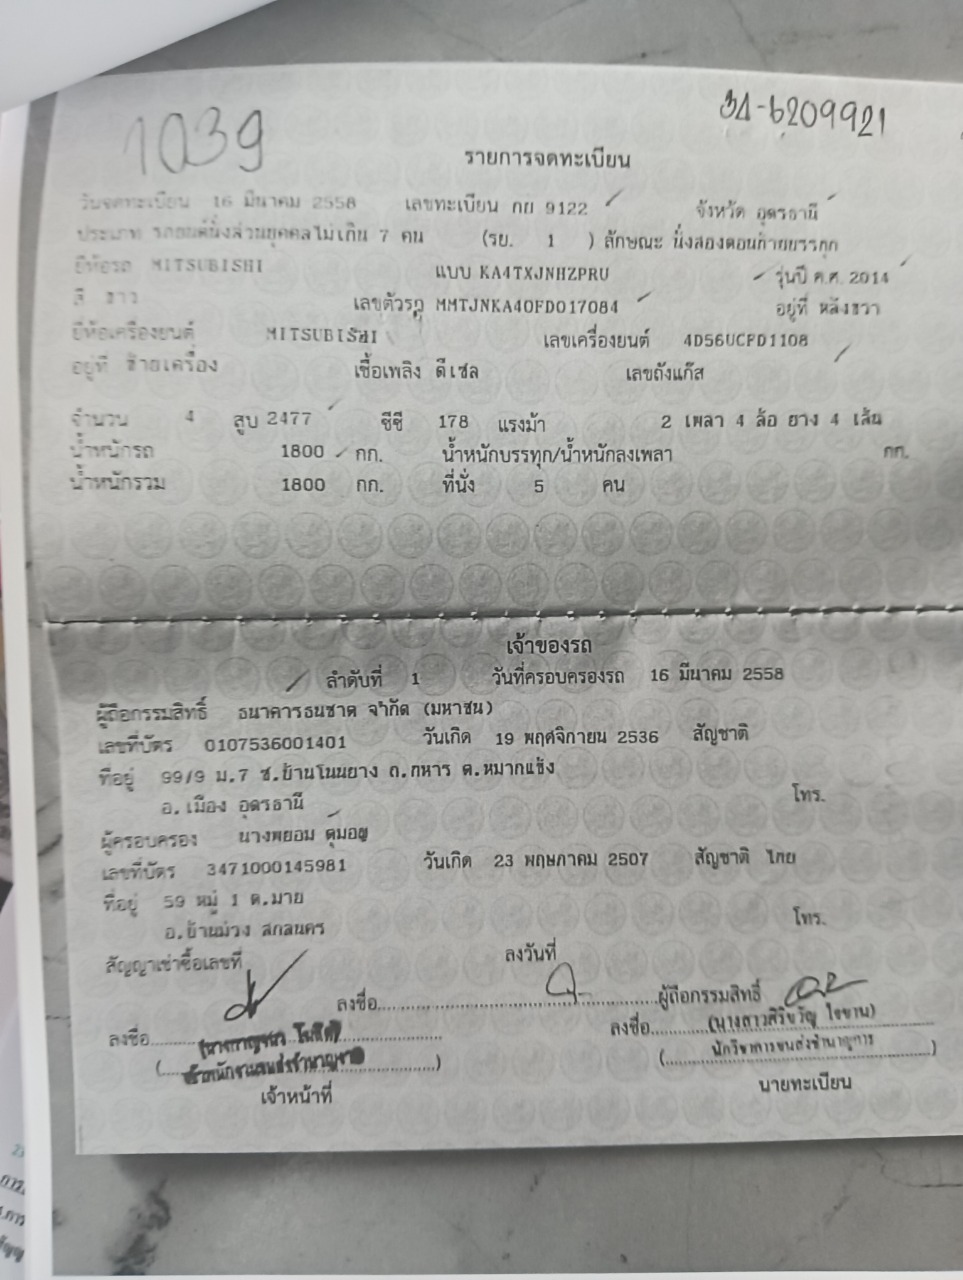 1039
34-6209921
รายการจดทะเบียน
วันจดทะเบียน 16 มีนาคม 2558 เลขทะเบียน กย 9122 จังหวัด อุดรธานี
ประเภท รถยนต์นั่งส่วนบุคคลไม่เกิน 7 คน (รย. 1 ) ลักษณะ นั่งสองตอนท้ายบรรทุก
ยี่ห้อรถ MITSUBISHI แบบ KA4TXJNHZPRU รุ่นปี ค.ศ. 2014
สี ขาว เลขตัวรถ MMTJNKA40FD017084 อยู่ที่ หลังขวา
ยี่ห้อเครื่องยนต์ MITSUBISHI เลขเครื่องยนต์ 4D56UCFD1108
อยู่ที่ ซ้ายเครื่อง เชื้อเพลิง ดีเซล เลขถังแก๊ส
จำนวน 4 สูบ 2477 ซีซี 178 แรงม้า 2 เพลา 4 ล้อ ยาง 4 เส้น
น้ำหนักรถ 1800 กก. น้ำหนักบรรทุก/น้ำหนักลงเพลา กก.
น้ำหนักรวม 1800 กก. ที่นั่ง 5 คน
เจ้าของรถ
ลำดับที่ 1 วันที่ครอบครองรถ 16 มีนาคม 2558
ผู้ถือกรรมสิทธิ์ ธนาคารธนชาต จำกัด (มหาชน)
เลขที่บัตร 0107536001401 วันเกิด 19 พฤศจิกายน 2536 สัญชาติ
ที่อยู่ 99/9 ม.7 ซ.บ้านโนนยาง ถ.ทหาร ต.หมากแข้ง
อ.เมือง อุดรธานี โทร.
ผู้ครอบครอง นางพยอม
เลขที่บัตร 3471000145981 วันเกิด 23 พฤษภาคม 2507 สัญชาติ ไทย
ที่อยู่ 59 หมู่ 1 ต.มาย
อ.บ้านม่วง สกลนคร โทร.
สัญญาเช่าซื้อเลขที่ ลงวันที่
ลงชื่อ ผู้ถือกรรมสิทธิ์
ลงชื่อ ลงชื่อ (นางสาวศิริขวัญ
นักวิชาการขนส่งชำนาญการ
เจ้าหน้าที่ นายทะเบียน